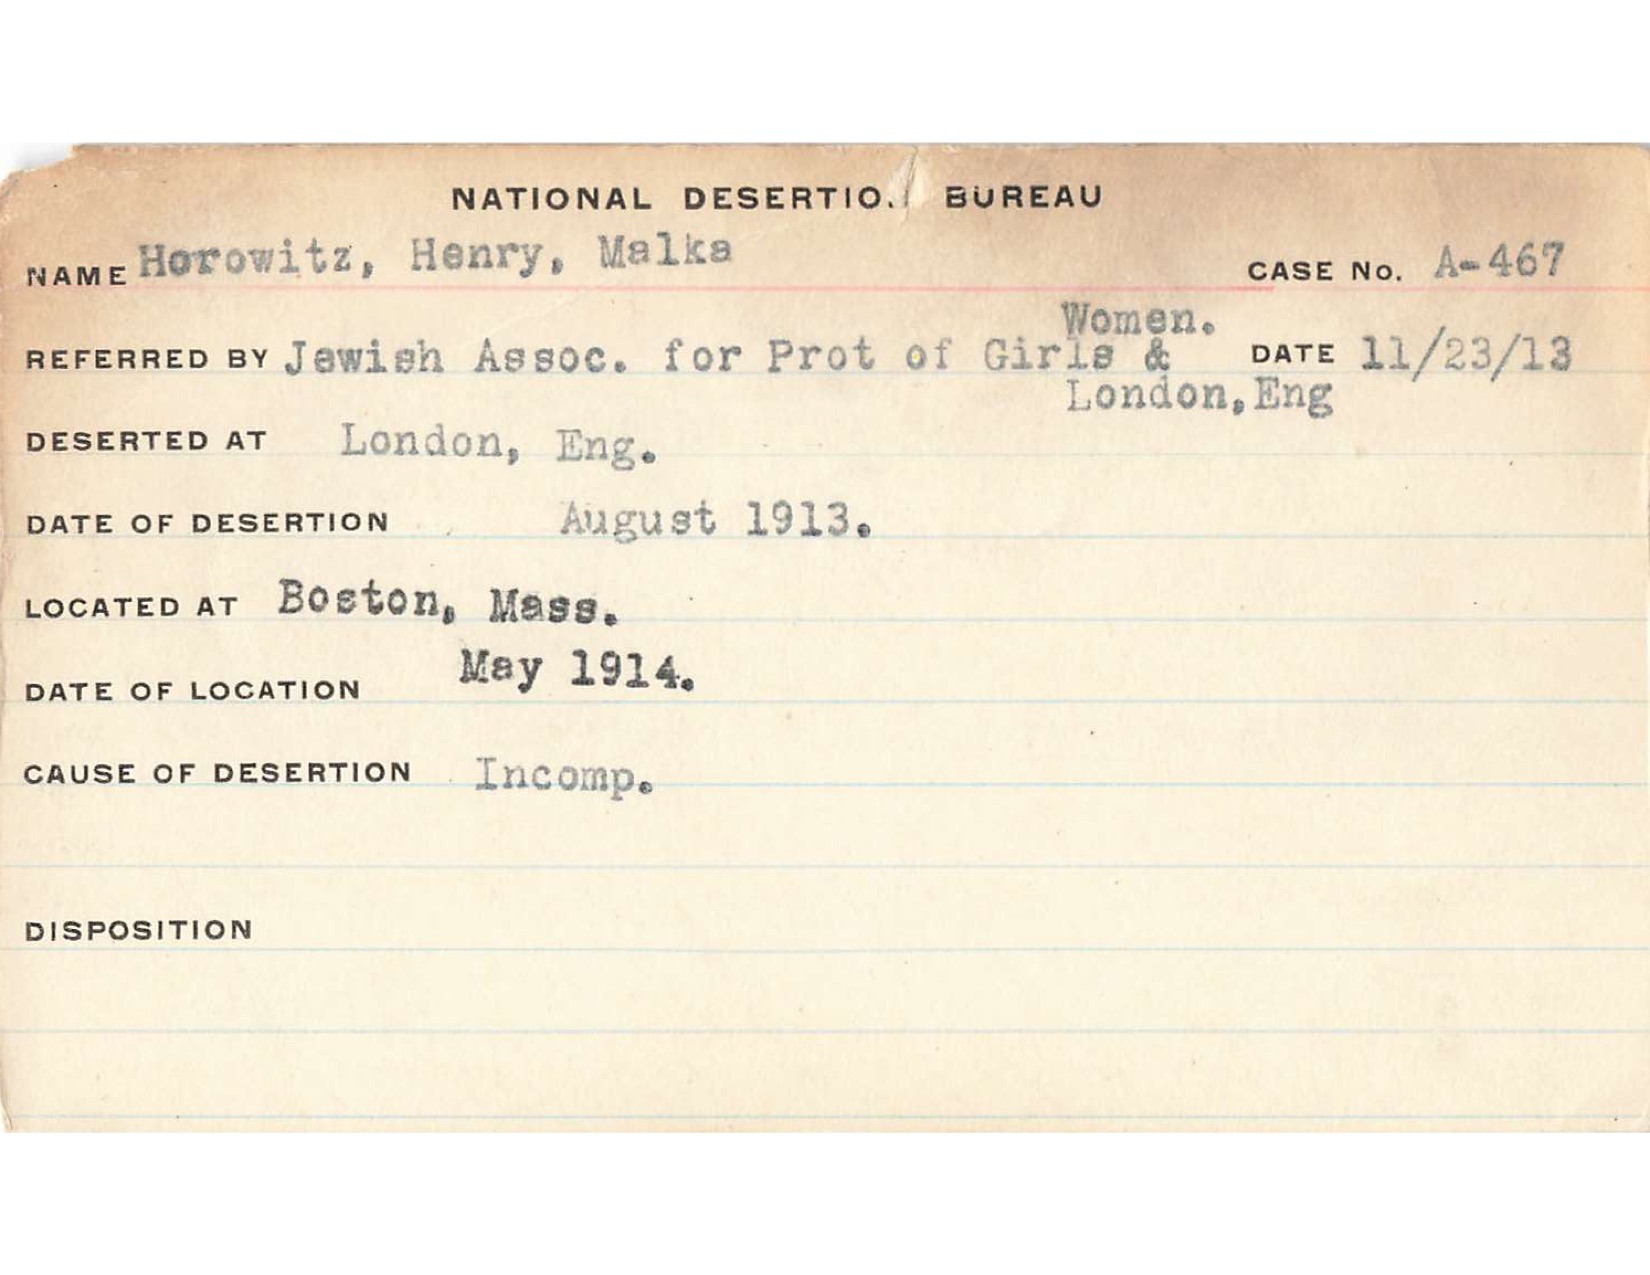 NATIONAL DESERTIO. BUREAU
NAME Horowitz, Henry, Malka CASE No. A-467
Women.
REFERRED BY Jewish Assoc. for Prot of Girls & DATE 11/23/13
London, Eng
DESERTED AT London, Eng.
DATE OF DESERTION August 1913.
LOCATED AT Boston, Mass.
DATE OF LOCATION May 1914.
CAUSE OF DESERTION Incomp.
DISPOSITION